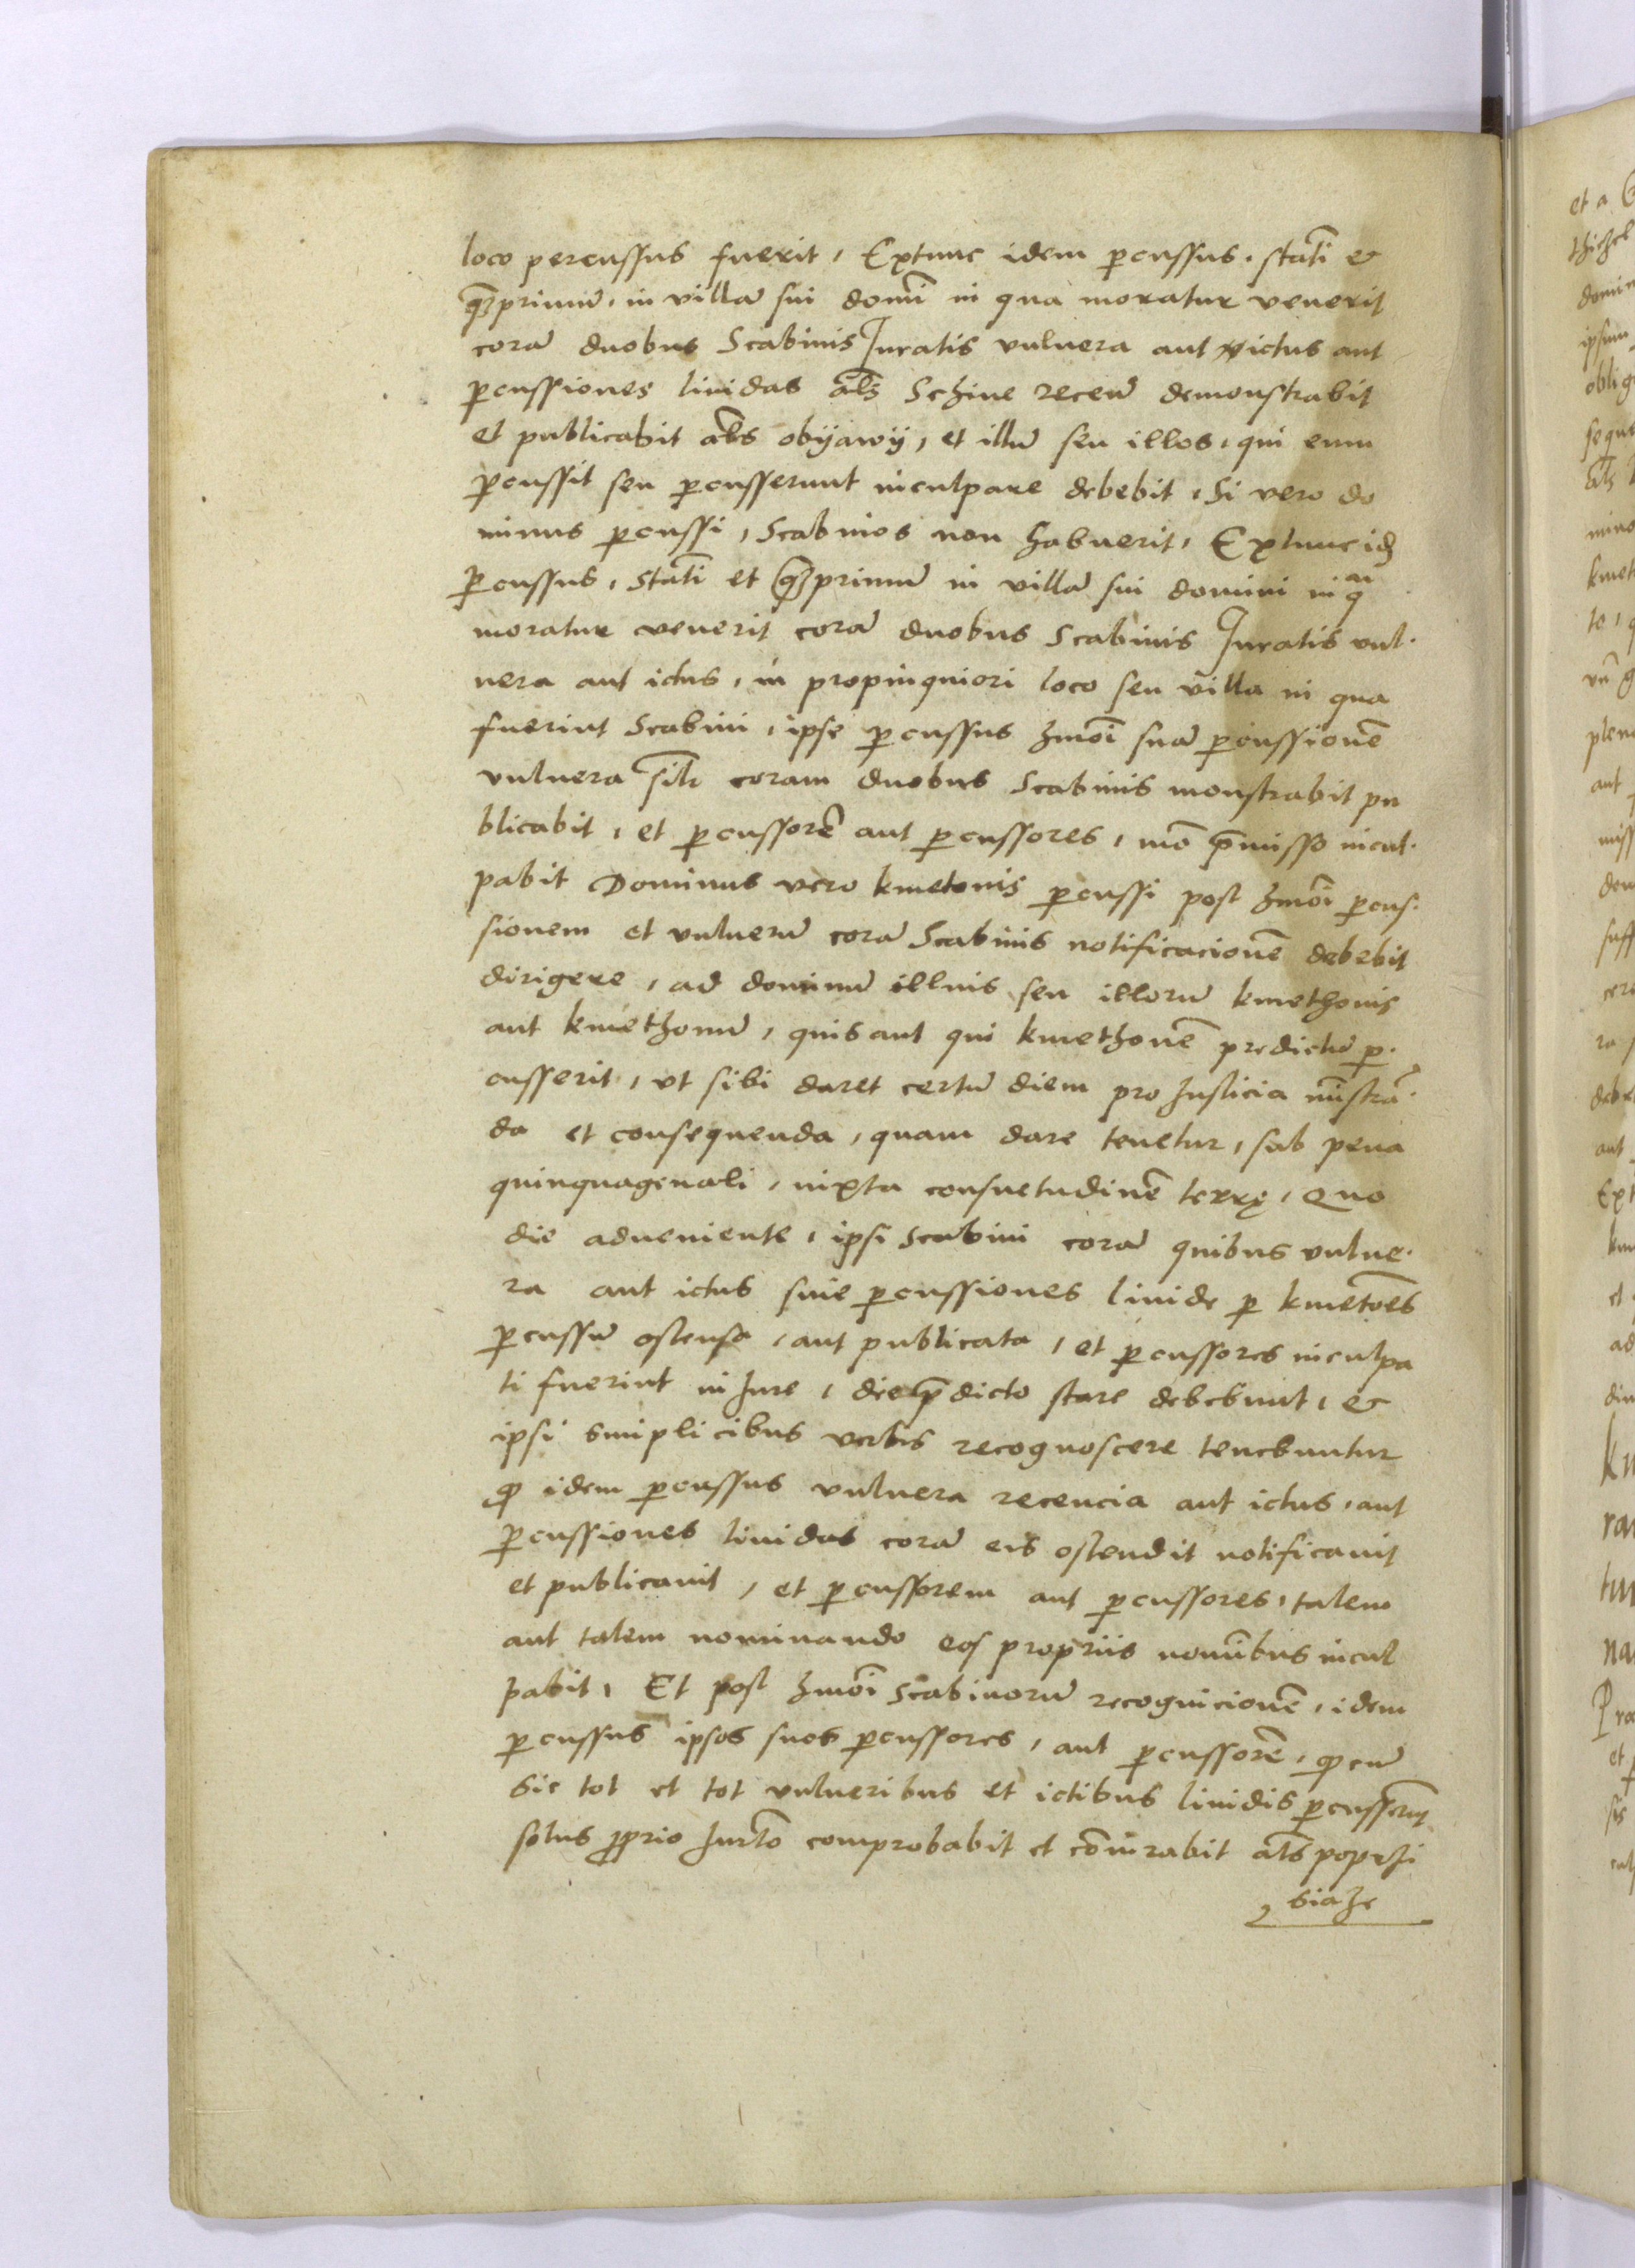 loco percussus fuerit, Extunc idem ꝑcussus. statĩ et
ꝙprimũ, in villã sui domĩ in qua moratur venerit
corã duobus Scabinis Juratis vulnera aut ictus aut
ꝑcussiones liuidas als̃ Schine recen̄ demonstrabit
et publicabit als̃ obyawy, et illũ seu illos, qui eum
ꝑcussit seu ꝑcusserunt inculpare debebit, Si vero do
minus ꝑcussi, Scabinos non habuerit, Extunc idẽ
ꝑcussus, Statĩ et ꝙprimũ in villã sui domini in qᵃ
moratur venerit corã duobus Scabinis Juratis vul.
nera aut ictus, in propinquiori loco seu villa in qua
fuerint Scabini, ipse ꝑcussus hmõi suã ꝑcussionẽ
vulnera sił̃r coram duobus Scabinis monstrabit pu
blicabit, et ꝑcussorẽ aut ꝑcussores, mõ p̃misso incul.
pabit Dominus vero kmetonis ꝑcussi post hmõi ꝑcus.
sionem et vulnerũ corã Scabinis notificacionẽ debebit
dirigere, ad dominũ illius seu illorũ kmethonis
aut kmethonũ, quis aut qui kmethonẽ predictũ ꝑ.
cusserit, vt sibi daret certũ diem pro Justicia mĩstrã.
da et consequenda, quam dare tenetur, sub pena
quinquagenali, iuxta consuetudinẽ terrę, Quo
die adueniente, ipsi Scabini corã quibus vulne.
ra aut ictus siue ꝑcussiones liuide ꝑ kmetões
ꝑcussũ ostensa, aut publicata, et ꝑcussores inculpa
ti fuerint in Jure, die p̃dicto stare debebunt, et
ipsi simplicibus verbis recognoscere tenebuntur
ꝙ idem ꝑcussus vulnera recencia aut ictus, aut
ꝑcussiones liuidas corã eis ostendit notificauit
et publicauit, et ꝑcussorem aut ꝑcussores, talem
aut talem nominando eos propriis nomĩbus incul
pabit, Et post hmõi Scabinorũ recognicionẽ, idem
ꝑcussus ipsos suos ꝑcussores, aut ꝑcussorẽ, ꝙ eũ
sic tot et tot vulneribus et ictibus liuidis ꝑcusserũt
solus ꝓprio Jurto̅ comprobabit et cõiurabit als̃ poprzi
siaze